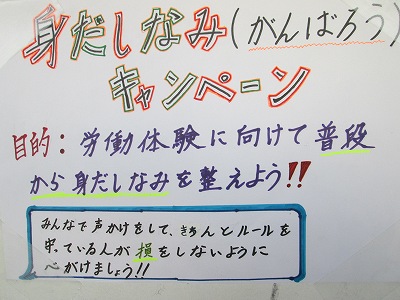 身だしなみ(がんばろう)
キャンペーン
目的：労働体験に向けて普段
から身だしなみを整えよう!!
みんなで声かけをして、きちんとルールを
守っている人が損をしないように
心がけましょう!!